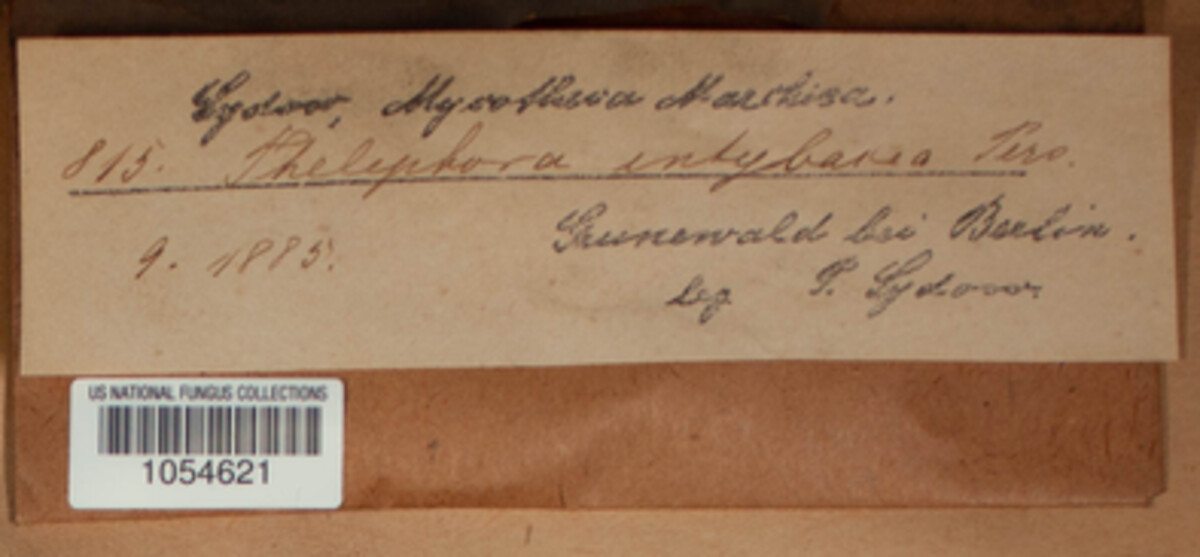 Sydow, Mycotheca Marchica.
815. Thelephora intybacea Pers.
9. 1885.
Grunewald bei Berlin.
leg P. Sydow.
US NATIONAL FUNGUS COLLECTIONS
1054621